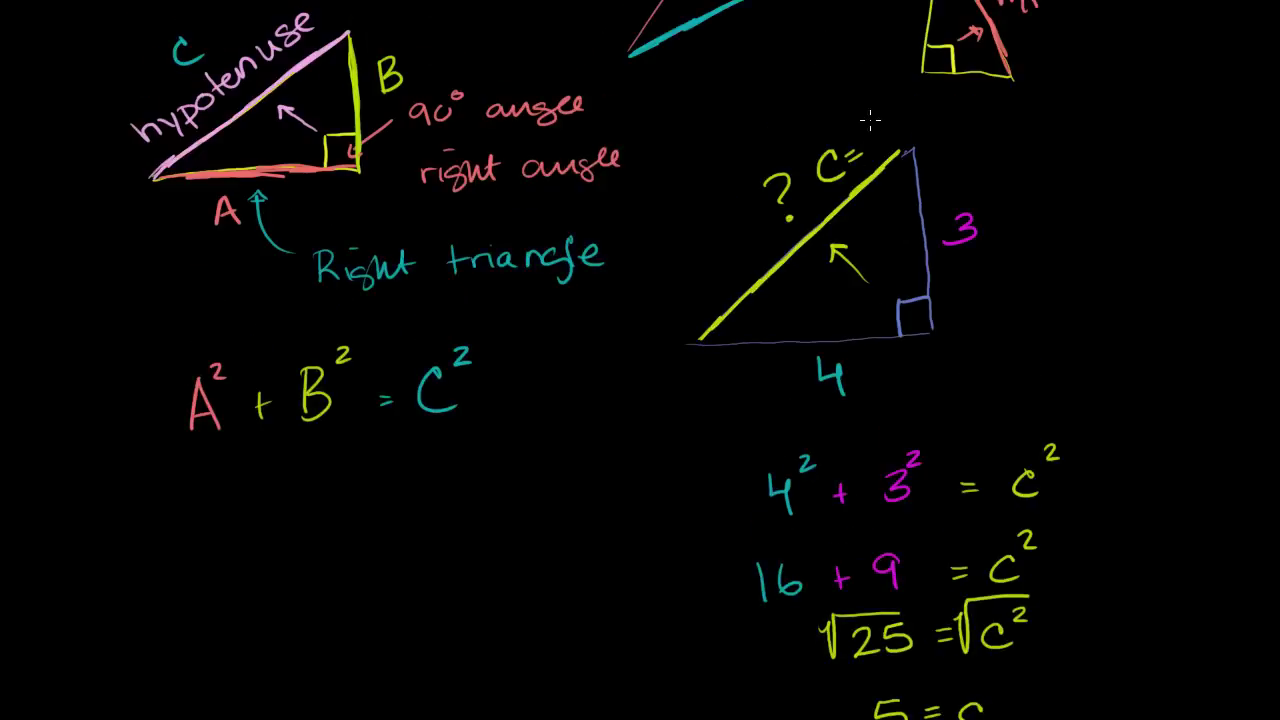 C
hypotenuse
B
90° angle
right angle
A
Right triangle
A² + B² = C²
? C=
3
4
4² + 3² = C²
16 + 9 = C²
√25 = √C²
5 = C